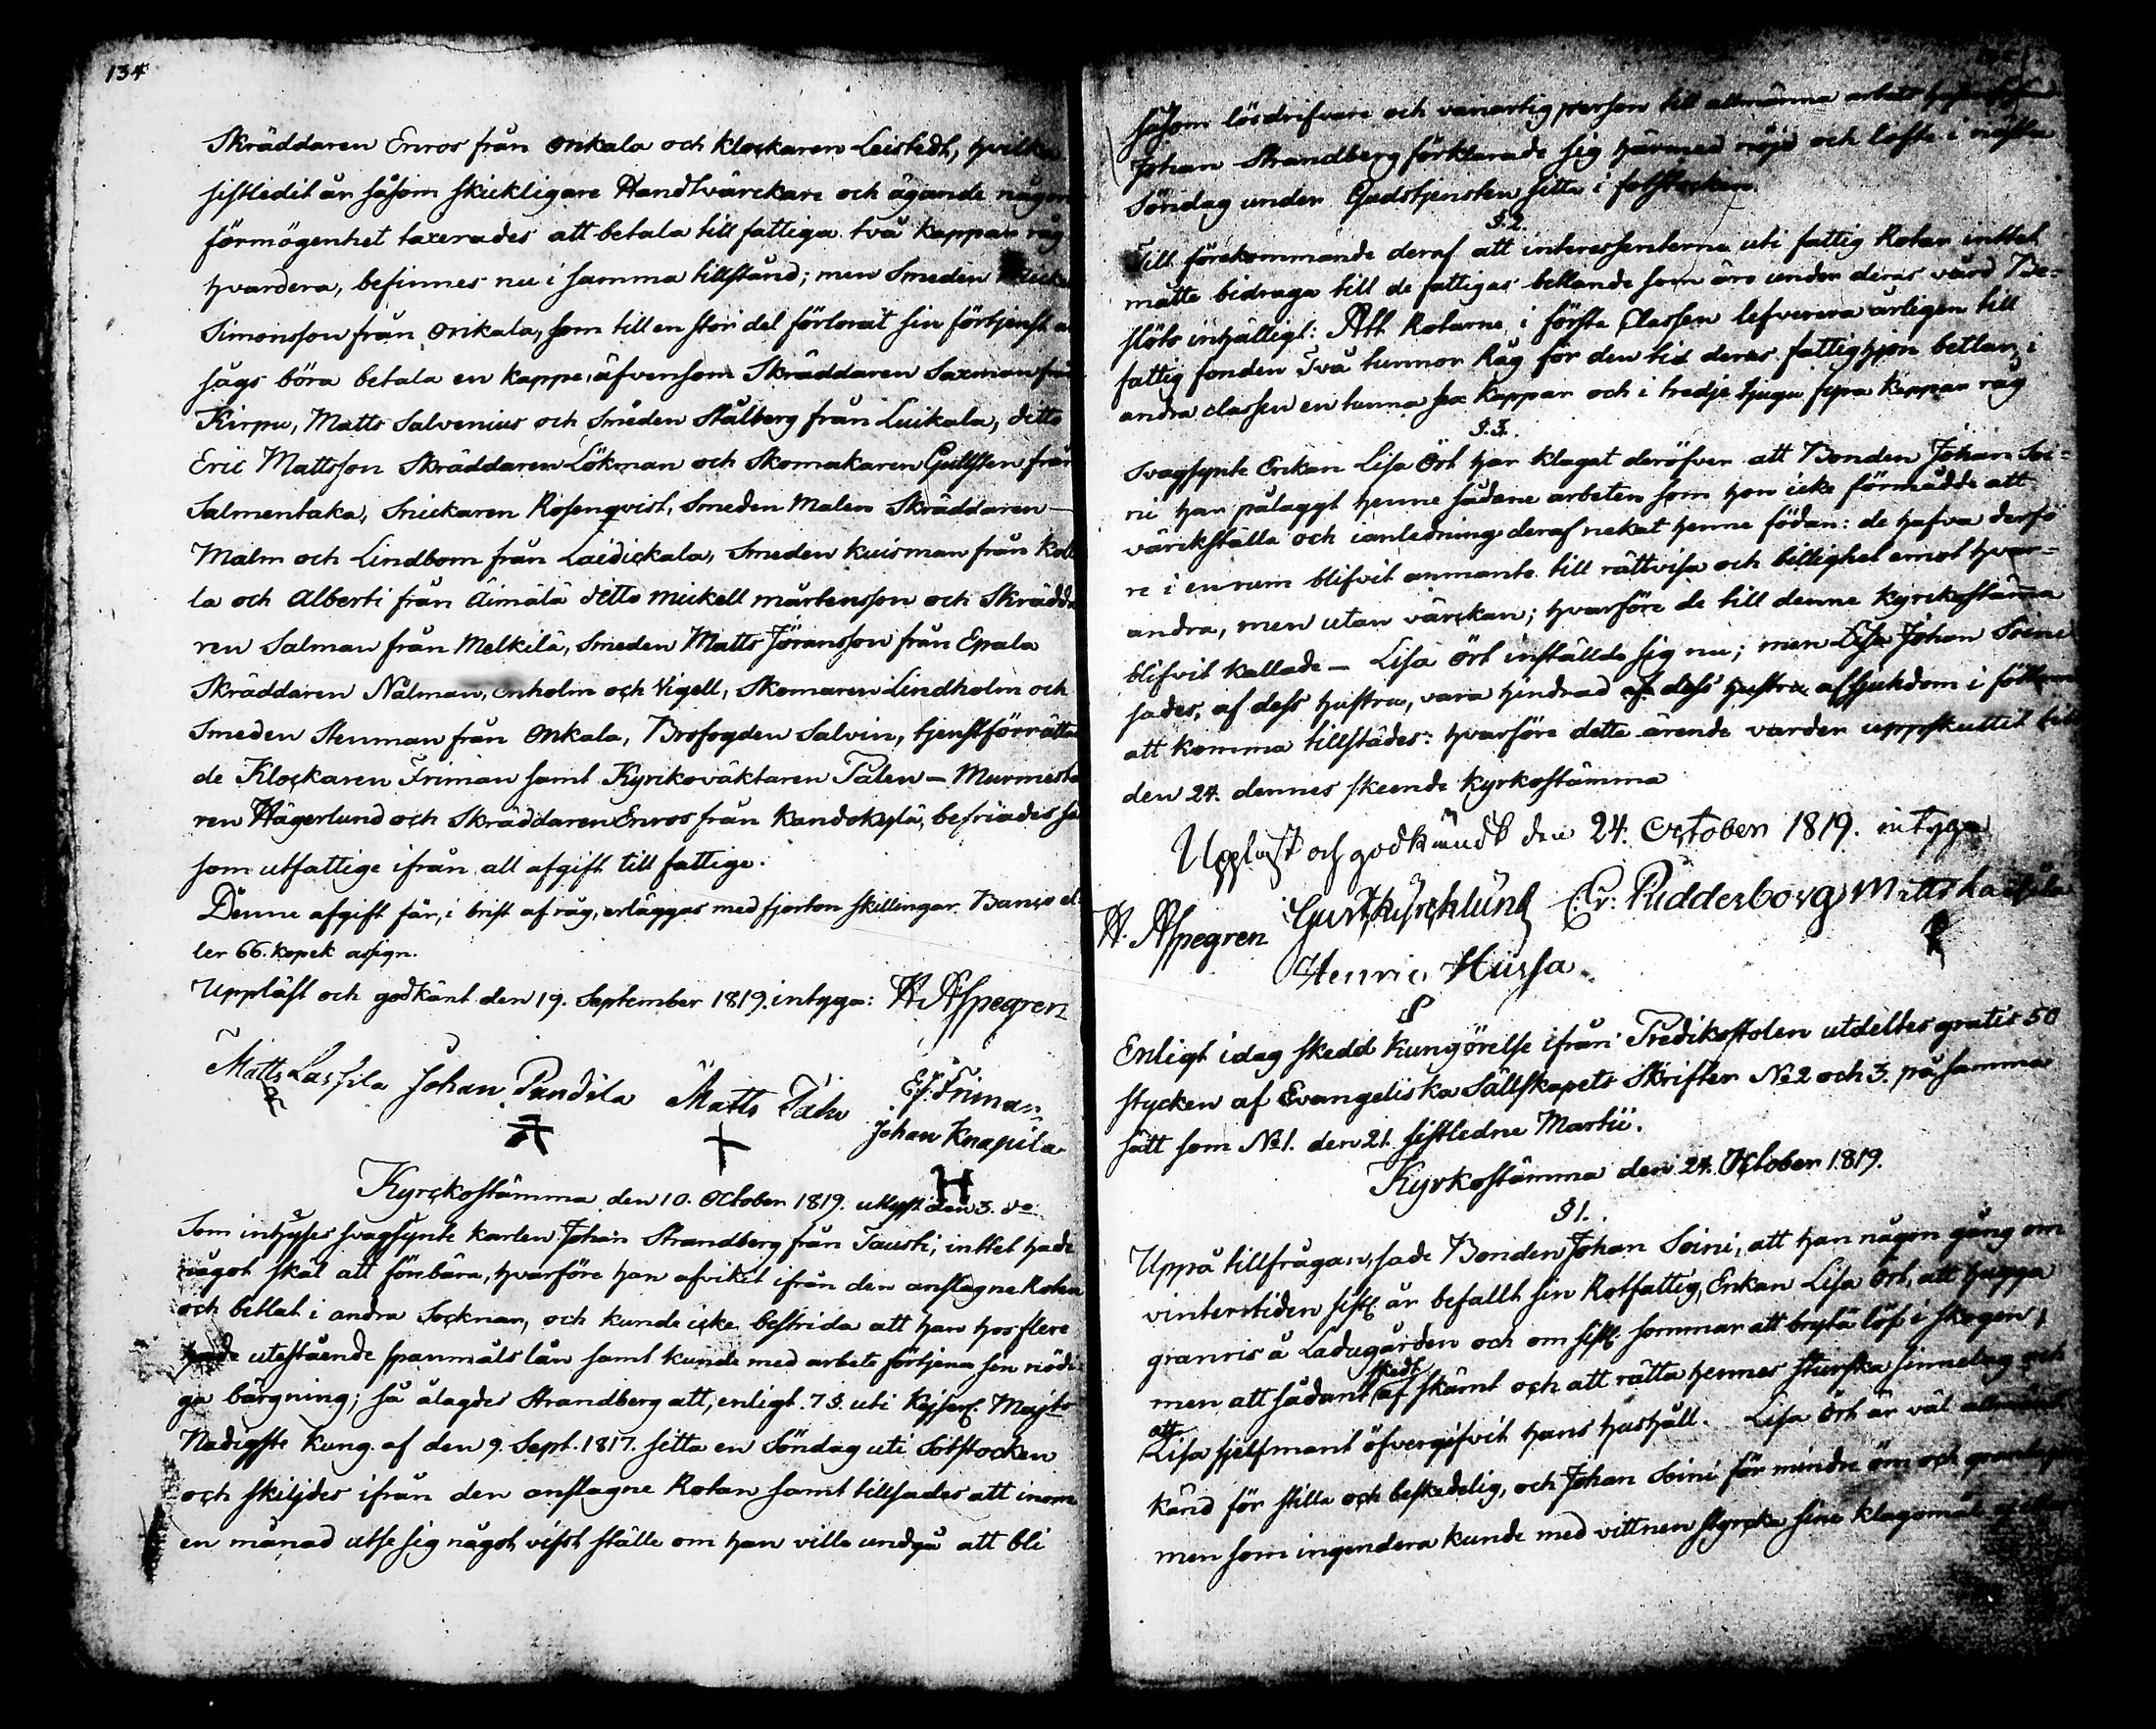 134
Skräddaren Enros från Onkala och klockaren Leistedt, hvilka
sistledit år såsom skickligare Handtvärckare och ägande någon
förmögenhet taxerades att betala till fattiga två kappar råg
hvardera, befinnes nu i samma tillstånd; men Smeden
Simonsson från Onkala, som till en stor del förlorat sin förtjenst
sågs böra betala en kappe, äfvensom Skräddaren Saxman från
Kirpu, Matts Salvenius och Smeden Stålberg från Luikala, ditto
Eric Mattsson Skräddaren Lökman och Skomakaren Gullsten från
Salmentaka, Snickaren Rosenqvist, Smeden Malen Skräddaren —
Malm och Lindbom från Laidickala, Smeden Kuisman från Koll
la och Alberti från Äimälä ditto Mickell Mårtensson och Skrädda
ren Salman från Melkilä, Smeden Matts Jöransson från Epala
Skräddaren Nålman, Enholm och Vigell, Skomaren Lindholm och
Smeden Stenman från Onkala, Brofogden Salvin, tjenstförrättan
de Klockaren Friman samt Kyrkoväktaren Palen — Murmesta
ren Hägerlund och Skräddaren Enros från Kandokylä, befriades så
som utfattige ifrån all afgift till fattige.
Denne afgift får, i brist af råg, erläggas med fjorton skillingar Banco el-
ler 66. kopek assign.
Uppläst och godkänt den 19. September 1819. intyga: H. Aspegren
Matts Lassila Johan Pundila Matts Taku E. J. Friman
Johan Knapila
H
Kyrckostämma den 10. October 1819. utlyst den 3. do
Som inhyses svagsynte karlen Johan Strandberg från Tausti, inttet hade
något skäl att förebära, hvarföre han afvikit ifrån den anslagne Rotan
och betlat i andra Socknar, och kunde icke bestrida att han hos flere
hade utestående spannmåls lån samt kunde med arbete förtjena sin nödi-
ga bärgning; så ålagdes Strandberg att, enligt 7 §. uti Kejserl. Majts
Nådigste Kung. af den 9. Sept. 1817. sitta en Söndag uti Sotstocken
och skiljdes ifrån den anslagne Rotan samt tillsades att inom
en månad utse sig något visst ställe om han ville undgå att bli
såsom lösdrifvare och vanartig person till allmänna arbete
Johan Strandberg förklarade sig härmed nöjd och lofte i nästa
Söndag under Gudstjensten sitta i fotstocken.
§. 2.
Till förekommande deraf att interessenterna uti fattig Rotan inttet
måtte bidraga till de fattigas betlande som äro under deras vård Be-
slöts inhälligt: Att Rotarne i förste Classen lefverera årligen till
fattig fonden Två tunnor Råg för den tid deras fattighjon betlar, i
andra classen en tunna sex kappar och i tredje tjugu fyra kappar råg
§. 3.
Svagsynte Enkan Lisa Ört har klagat deröfver att Bonden Johan Soi-
ni har pålaggt henne sådane arbeten som hon icke förmådde att
värckställa och i anledning deraf nekat henne födan: de hafva derfö
re i enrum blifvit anmante till rättvisa och billighet emot hvar-
andra, men utan värckan; hvarföre de till denne kyrckostämma
blifvit kallade — Lisa Ört inställde sig nu; men Lisa Johan Soini
sades, af dess hustru, vara hindrad af dess hustru af sjukdom i fötterna
att komma tillstädes: hvarföre dette ärende varder uppskuttit till
den 24. dennes skeende kyrkostämma
Uppläst och godkändt den 24. October 1819. intyga
H. Aspegren Gust. Kyrcklünd C. Gr: Ridderborg Matts Lassila
Henric Hussa
Enligt idag skedd kungörelse ifrån Predikostolen utdeltes gratis 50
stycken af Evangeliska Sällskapets Skrifter No 2 och 3. på samma
sätt som No 1. den 21. sistledne Martii.
Kyrkostämma den 24. October 1819.
§ 1.
Uppå tillfrågan, sade Bonden Johan Soini, att han någon gång om
vinterstiden sistl. år befallt sin Rotfattig, Enkan Lisa Ört, att hugga
granris å Ladugården och om sistl. sommar att bryta löf i skogen;
men att sådant skedt af skämt och att rätta hennes sturska sinnelag och
att Lisa sjelfmant öfvergifvit hans hushåll. Lisa Ört är väl allmänt
känd för stilla och beskedelig, och Johan Soini för mindre öm och
men som ingendera kunde med vittnen styrcka sine klagomål